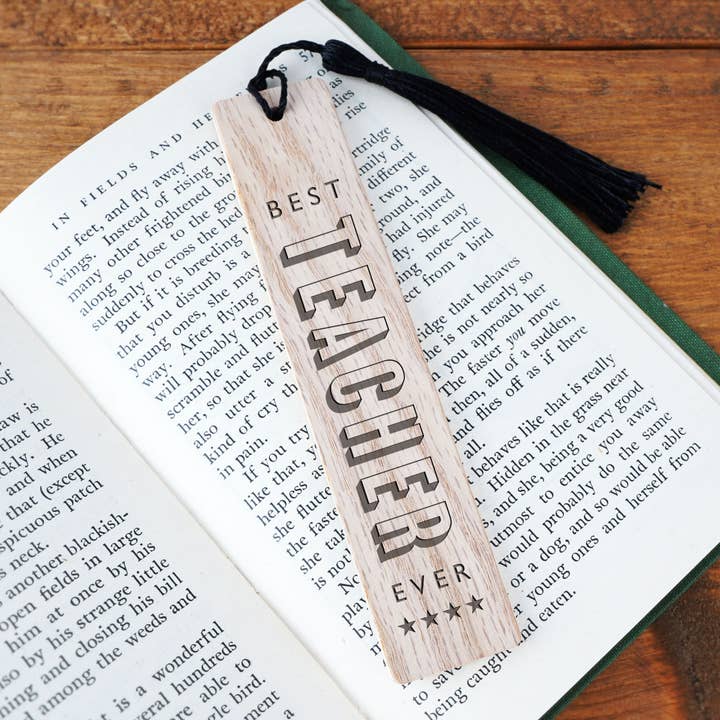 BEST
TEACHER
EVER
IN FIELDS AND HE
your feet, and fly away with rise
wings. Instead of rising artridge
many other frightened family of
along so close to the different
suddenly to cross the bed two, she
But if it is breeding and
that you disturb a had injured
young ones, she may She may
way. After flying note—the
will probably drop from a bird
scramble and flutt
her, so that she ridge that behaves
also utter a is not nearly so
kind of cry you approach her
in pain. The faster you move
If you try then, all of a sudden,
like that, and flies off as if there
helpless as all.
she behaves like that is really
the Hidden in the grass near
she and she, being a very good
is not utmost to entice you away
No would probably do the same
play or a dog, and so would be able
to save young ones and herself from
being caught and eaten.
of
aw is
that he
ckly. He
and when
that (except
spicuous patch
s neck.
another blackish-
open fields in large
him at once by his
so by his strange little
ning and closing his bill
among the weeds and
is a wonderful
several hundreds
are able to
gle bird.